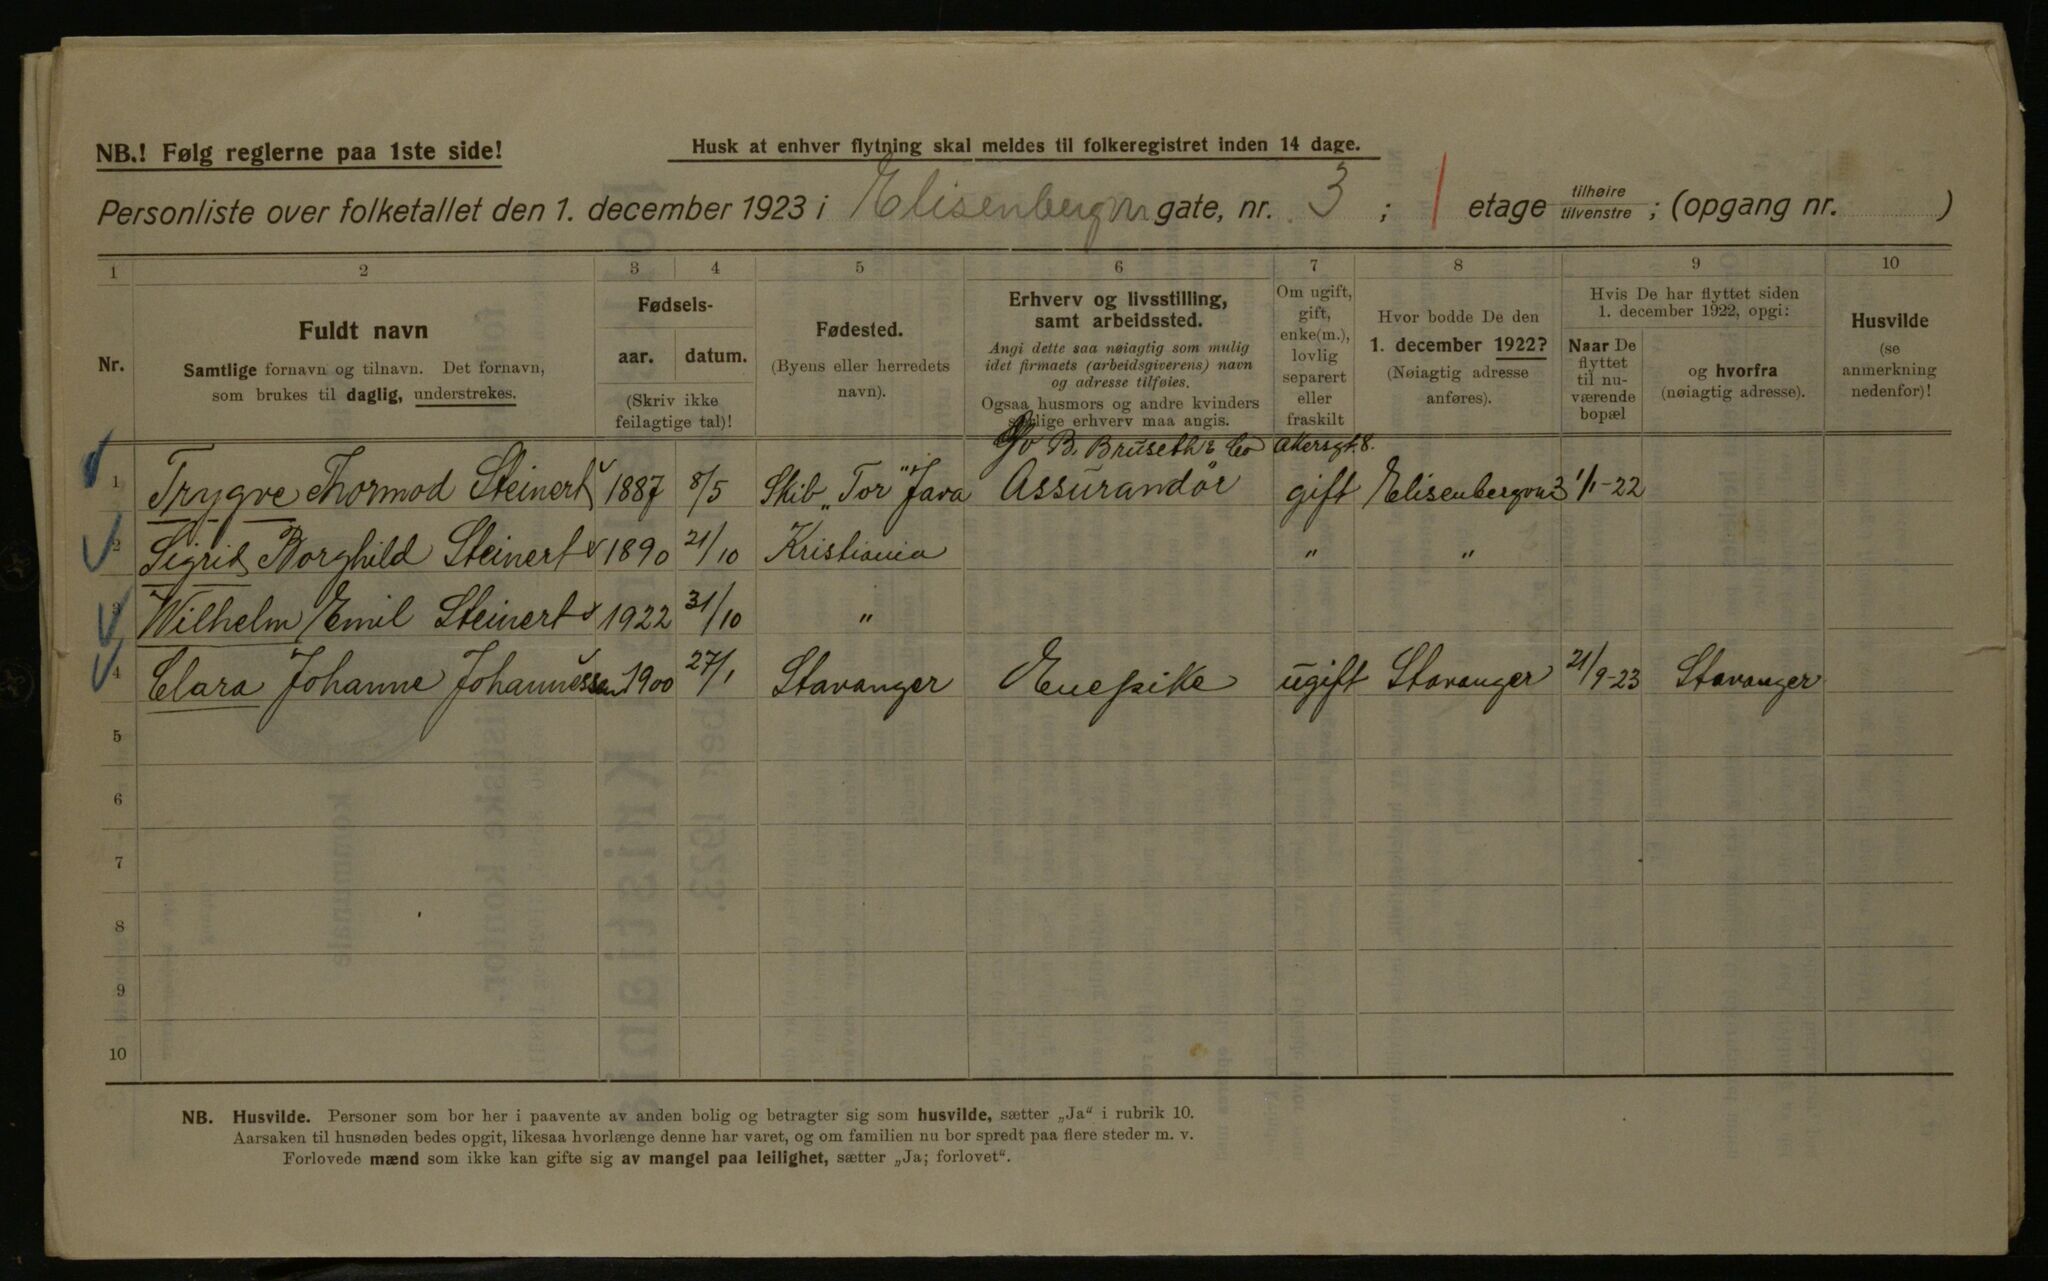 NB.! Følg reglerne paa 1ste side!
Husk at enhver flytning skal meldes til folkeregistret inden 14 dage.
Personliste over folketallet den 1. december 1923 i Elisenbergvn gate, nr. 3 ; 1 etage tilhøire tilvenstre ; (opgang nr. )
1 2 3 4 5 6 7 8 9 10
Nr.
Fuldt navn
Samtlige fornavn og tilnavn. Det fornavn,
som brukes til daglig, understrekes.
Fødsels-
aar. datum.
(Skriv ikke
feilagtige tal)!
Fødested.
(Byens eller herredets
navn).
Erhverv og livsstilling,
samt arbeidssted.
Angi dette saa nøiagtig som mulig
idet firmaets (arbeidsgiverens) navn
og adresse tilføies.
Ogsaa husmors og andre kvinders
særlige erhverv maa angis.
Om ugift,
gift,
enke(m.),
lovlig
separert
eller
fraskilt
Hvor bodde De den
1. december 1922?
(Nøiagtig adresse
anføres).
Hvis De har flyttet siden
1. december 1922, opgi:
Naar De
flyttet
til nu-
værende
bopæl
og hvorfra
(nøiagtig adresse).
Husvilde
(se
anmerkning
nedenfor)!
B. Bruseth & Co Akersgt. 8.
1 Trygve Thormod Steinert 1887 8/5 Skib „Tor" Java Assurandør gift Elisenbergvn 3 1/1-22
2 Sigrid Borghild Steinert 1890 21/10 Kristiania " "
3 Wilhelm Emil Steinert 1922 31/10 "
4 Clara Johanne Johannessen 1900 27/1 Stavanger Enepike ugift Stavanger 21/9-23 Stavanger
5
6
7
8
9
10
NB. Husvilde. Personer som bor her i paavente av anden bolig og betragter sig som husvilde, sætter „Ja" i rubrik 10.
Aarsaken til husnøden bedes opgit, likesaa hvorlænge denne har varet, og om familien nu bor spredt paa flere steder m. v.
Forlovede mænd som ikke kan gifte sig av mangel paa leilighet, sætter „Ja; forlovet".